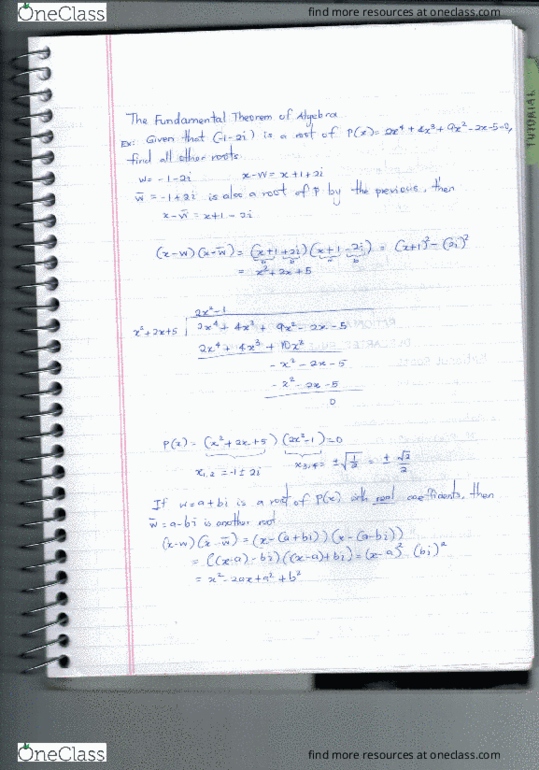 OneClass
find more resources at oneclass.com
TUTORIAL
The Fundamental Theorem of Algebra
Ex: Given that (-1-2i) is a root of P(x)= 2x⁴+4x³+9x²-2x-5=0,
find all other roots.
w= -1-2i x-w= x+1+2i
w̅ = -1+2i is also a root of P by the previous, then
x-w̅ = x+1-2i
(x-w)(x-w̅)= (x+1+2i)(x+1-2i) = (x+1)²-(2i)²
a b a b
= x²+2x+5
2x²-1
x²+2x+5 2x⁴+4x³+9x²-2x-5
2x⁴+4x³+10x²
-x²-2x-5
-x²-2x-5
0
P(x)= (x²+2x+5)(2x²-1)=0
x₁,₂ = -1±2i x₃,₄= ±√1/2 = ±√2/2
If w=a+bi is a root of P(x) with real coefficients, then
w̅=a-bi is another root
(x-w)(x-w̅)=(x-(a+bi))(x-(a-bi))
= ((x-a)-bi)((x-a)+bi)=(x-a)² (bi)²
= x²-2ax+a²+b²
OneClass
find more resources at oneclass.com